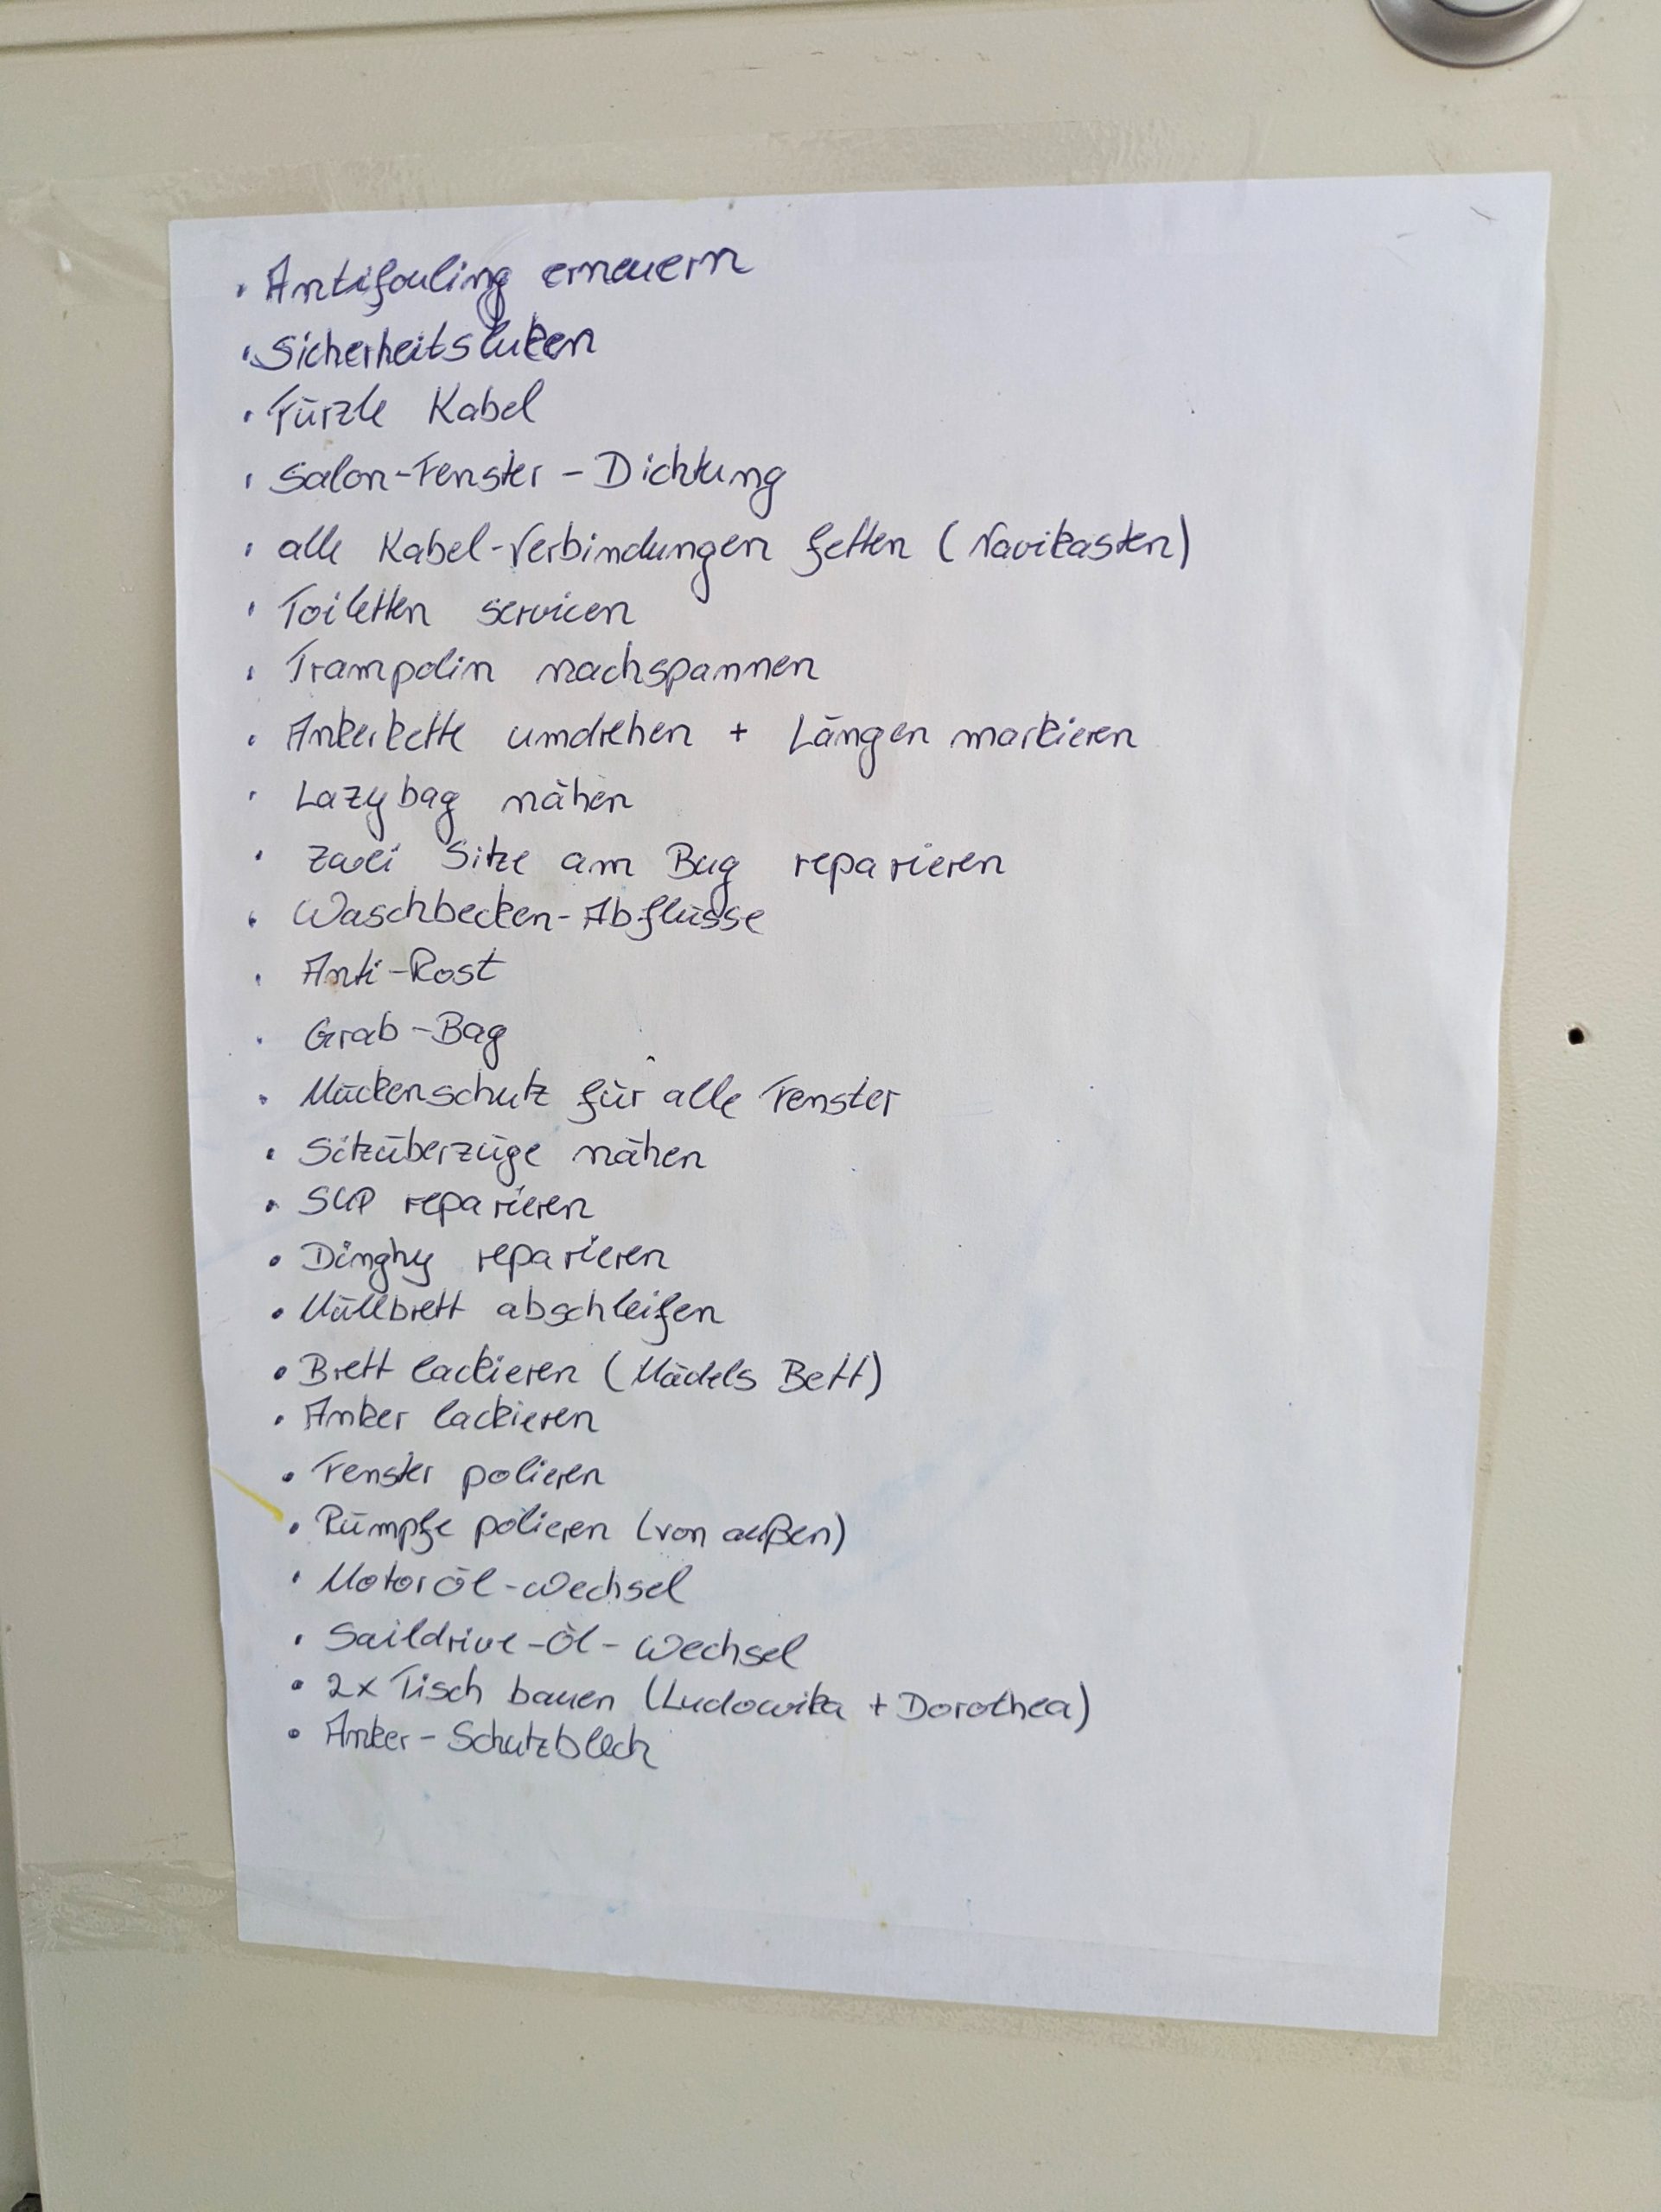 • Antifouling erneuern
• Sicherheitsluken
• Fürzle Kabel
• Salon-Fenster - Dichtung
• alle Kabel-Verbindungen fetten (Navikasten)
• Toiletten servicen
• Trampolin nachspannen
• Ankerkette umdrehen + Längen markieren
• Lazybag nähen
• Zwei Sitze am Bug reparieren
• Waschbecken-Abflüsse
• Anti-Rost
• Grab-Bag
• Mückenschutz für alle Fenster
• Sitzüberzüge nähen
• SUP reparieren
• Dinghy reparieren
• Müllbrett abschleifen
• Brett lackieren (Mädels Bett)
• Anker lackieren
• Fenster polieren
• Rümpfe polieren (von außen)
• Motoröl-Wechsel
• Saildrive-Öl-Wechsel
• 2x Tisch bauen (Ludowika + Dorothea)
• Anker-Schutzblech